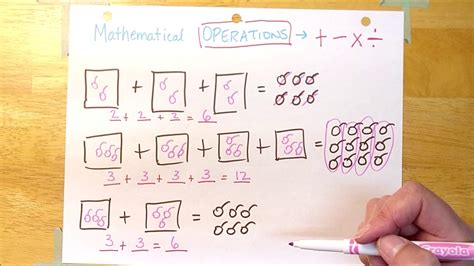 Mathematical OPERATIONS → + - × ÷
+ + =
2 + 2 + 2 = 6
+ + + =
3 + 3 + 3 + 3 = 12
+ =
3 + 3 = 6
Crayola